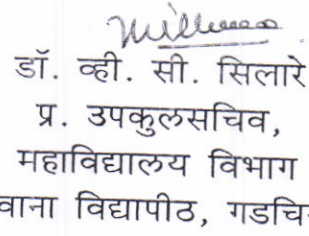 डॉ. व्ही. सी. सिलारे
प्र. उपकुलसचिव,
महाविद्यालय विभाग
विद्यापीठ,